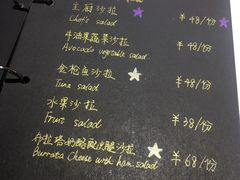 主厨沙拉 ¥48/份
Chef's salad
牛油果蔬菜沙拉 ¥48/份
Avocado vegetable salad
金枪鱼沙拉 ¥48/份
Tuna salad
水果沙拉 ¥38/份
Fruit salad
布拉塔奶酪配火腿沙拉 ¥68/份
Burrata Cheese with ham salad